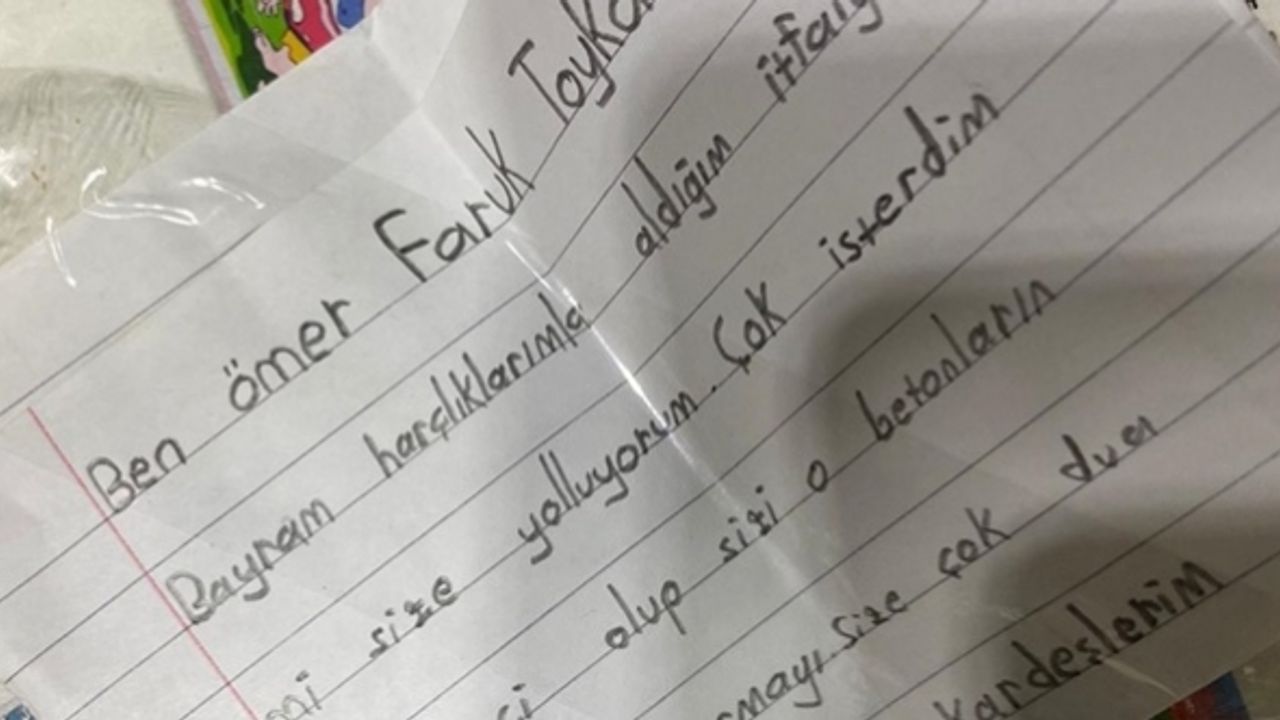 Ben ömer Faruk Toyka
Bayram harçlıklarımla aldığım itfaiy
mi size yolluyorum. Çok isterdim
çi olup sizi o betonların
mayı size çok dua
Kardeşlerim